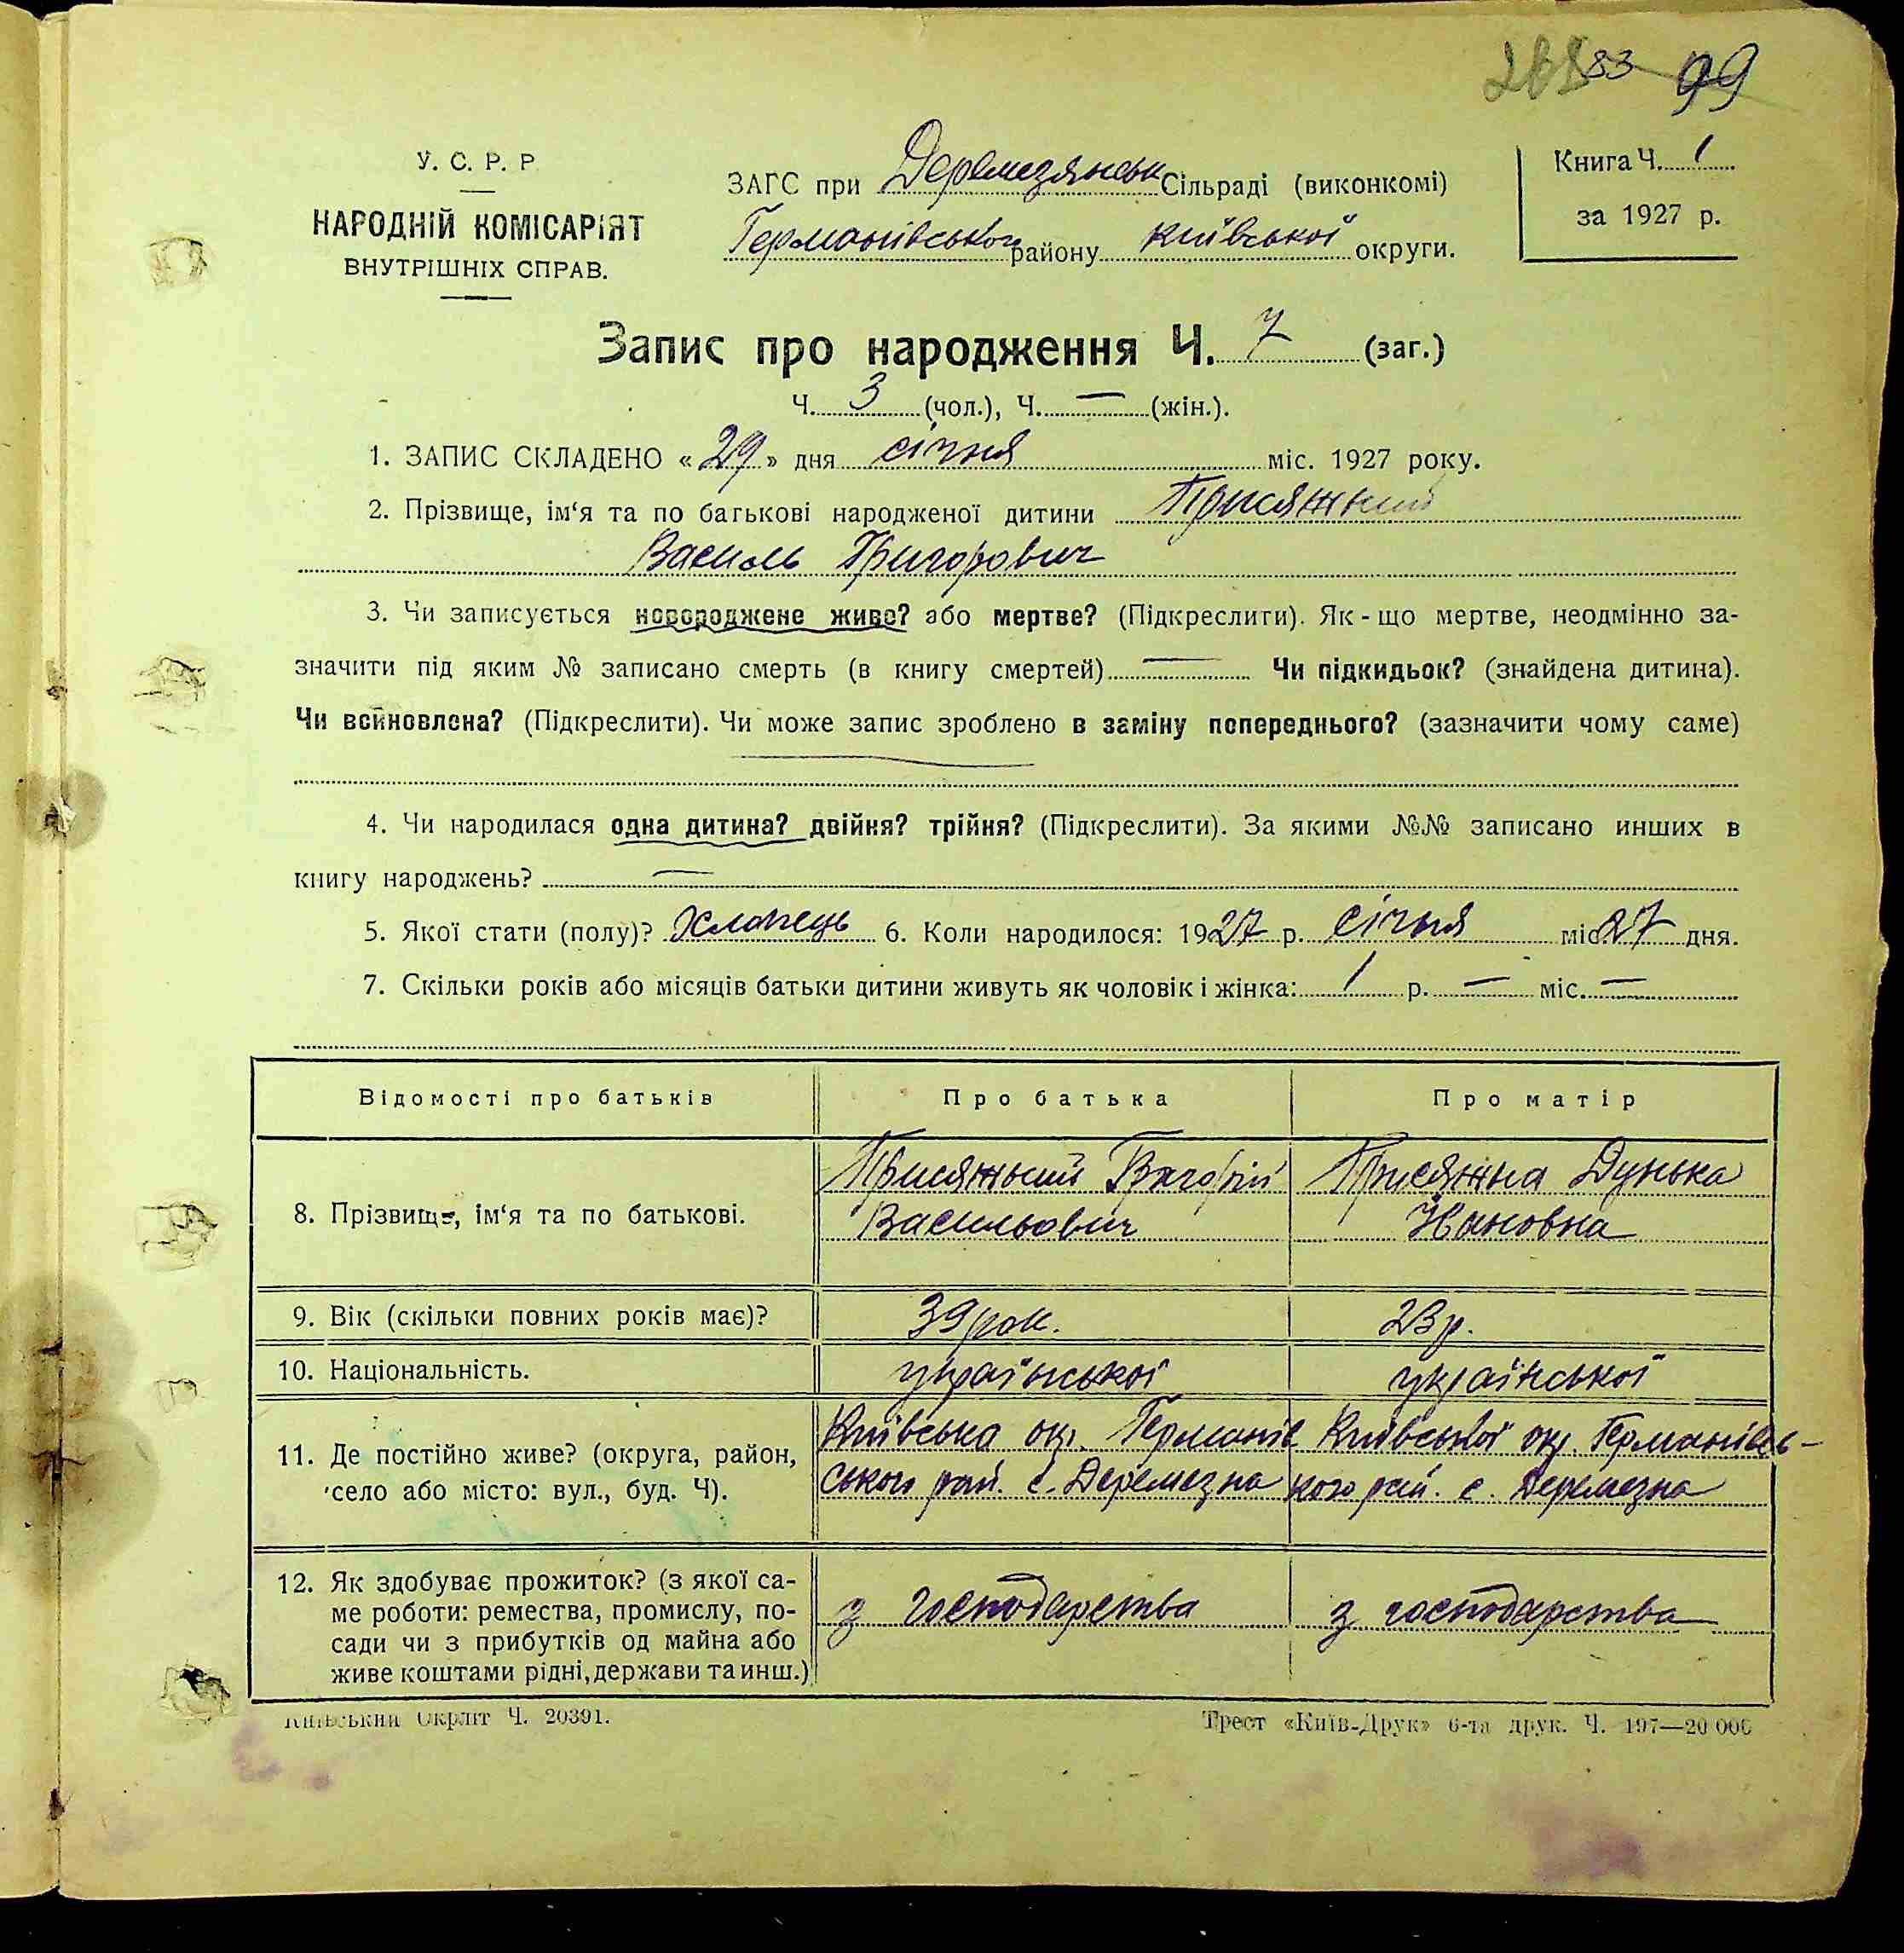 83 99
У. С. Р. Р
НАРОДНІЙ КОМІСАРІЯТ
ВНУТРІШНІХ СПРАВ.
ЗАГС при Деремезянськ Сільраді (виконкомі)
Германівського району київської округи.
Книга Ч. 1
за 1927 р.
Запис про народження Ч. 7 (заг.)
Ч. 3 (чол.), Ч. — (жін.).
1. ЗАПИС СКЛАДЕНО «29» дня січня міс. 1927 року.
2. Прізвище, ім‘я та по батькові народженої дитини Присяжний
Василь Григорович
3. Чи записується новороджене живе? або мертве? (Підкреслити). Як-що мертве, неодмінно за-
значити під яким № записано смерть (в книгу смертей) — Чи підкидьок? (знайдена дитина).
Чи всиновлена? (Підкреслити). Чи може запис зроблено в заміну попереднього? (зазначити чому саме)
4. Чи народилася одна дитина? двійня? трійня? (Підкреслити). За якими №№ записано инших в
книгу народжень? —
5. Якої стати (полу)? Хлопець 6. Коли народилося: 1927 р. січня міс. 27 дня.
7. Скільки років або місяців батьки дитини живуть як чоловік і жінка: 1 р. — міс. —
Відомості про батьків Про батька Про матір
8. Прізвище, ім‘я та по батькові.
Присяжний Григорій
Васильович
Присяжна Дунька
Івановна
9. Вік (скільки повних років має)? 39 рок. 23 р.
10. Національність. української української
11. Де постійно живе? (округа, район,
село або місто: вул., буд. Ч).
Київська окр. Германів
ського рай. с. Деремезна
Київської окр. Германівсь-
кого рай. с. Деремезна
12. Як здобуває прожиток? (з якої са-
ме роботи: ремества, промислу, по-
сади чи з прибутків од майна або
живе коштами рідні, держави та инш.)
з господарства
з господарства
Київський Окрліт Ч. 20391.
Трест «Київ-Друк» 6-та друк. Ч. 197—20 000